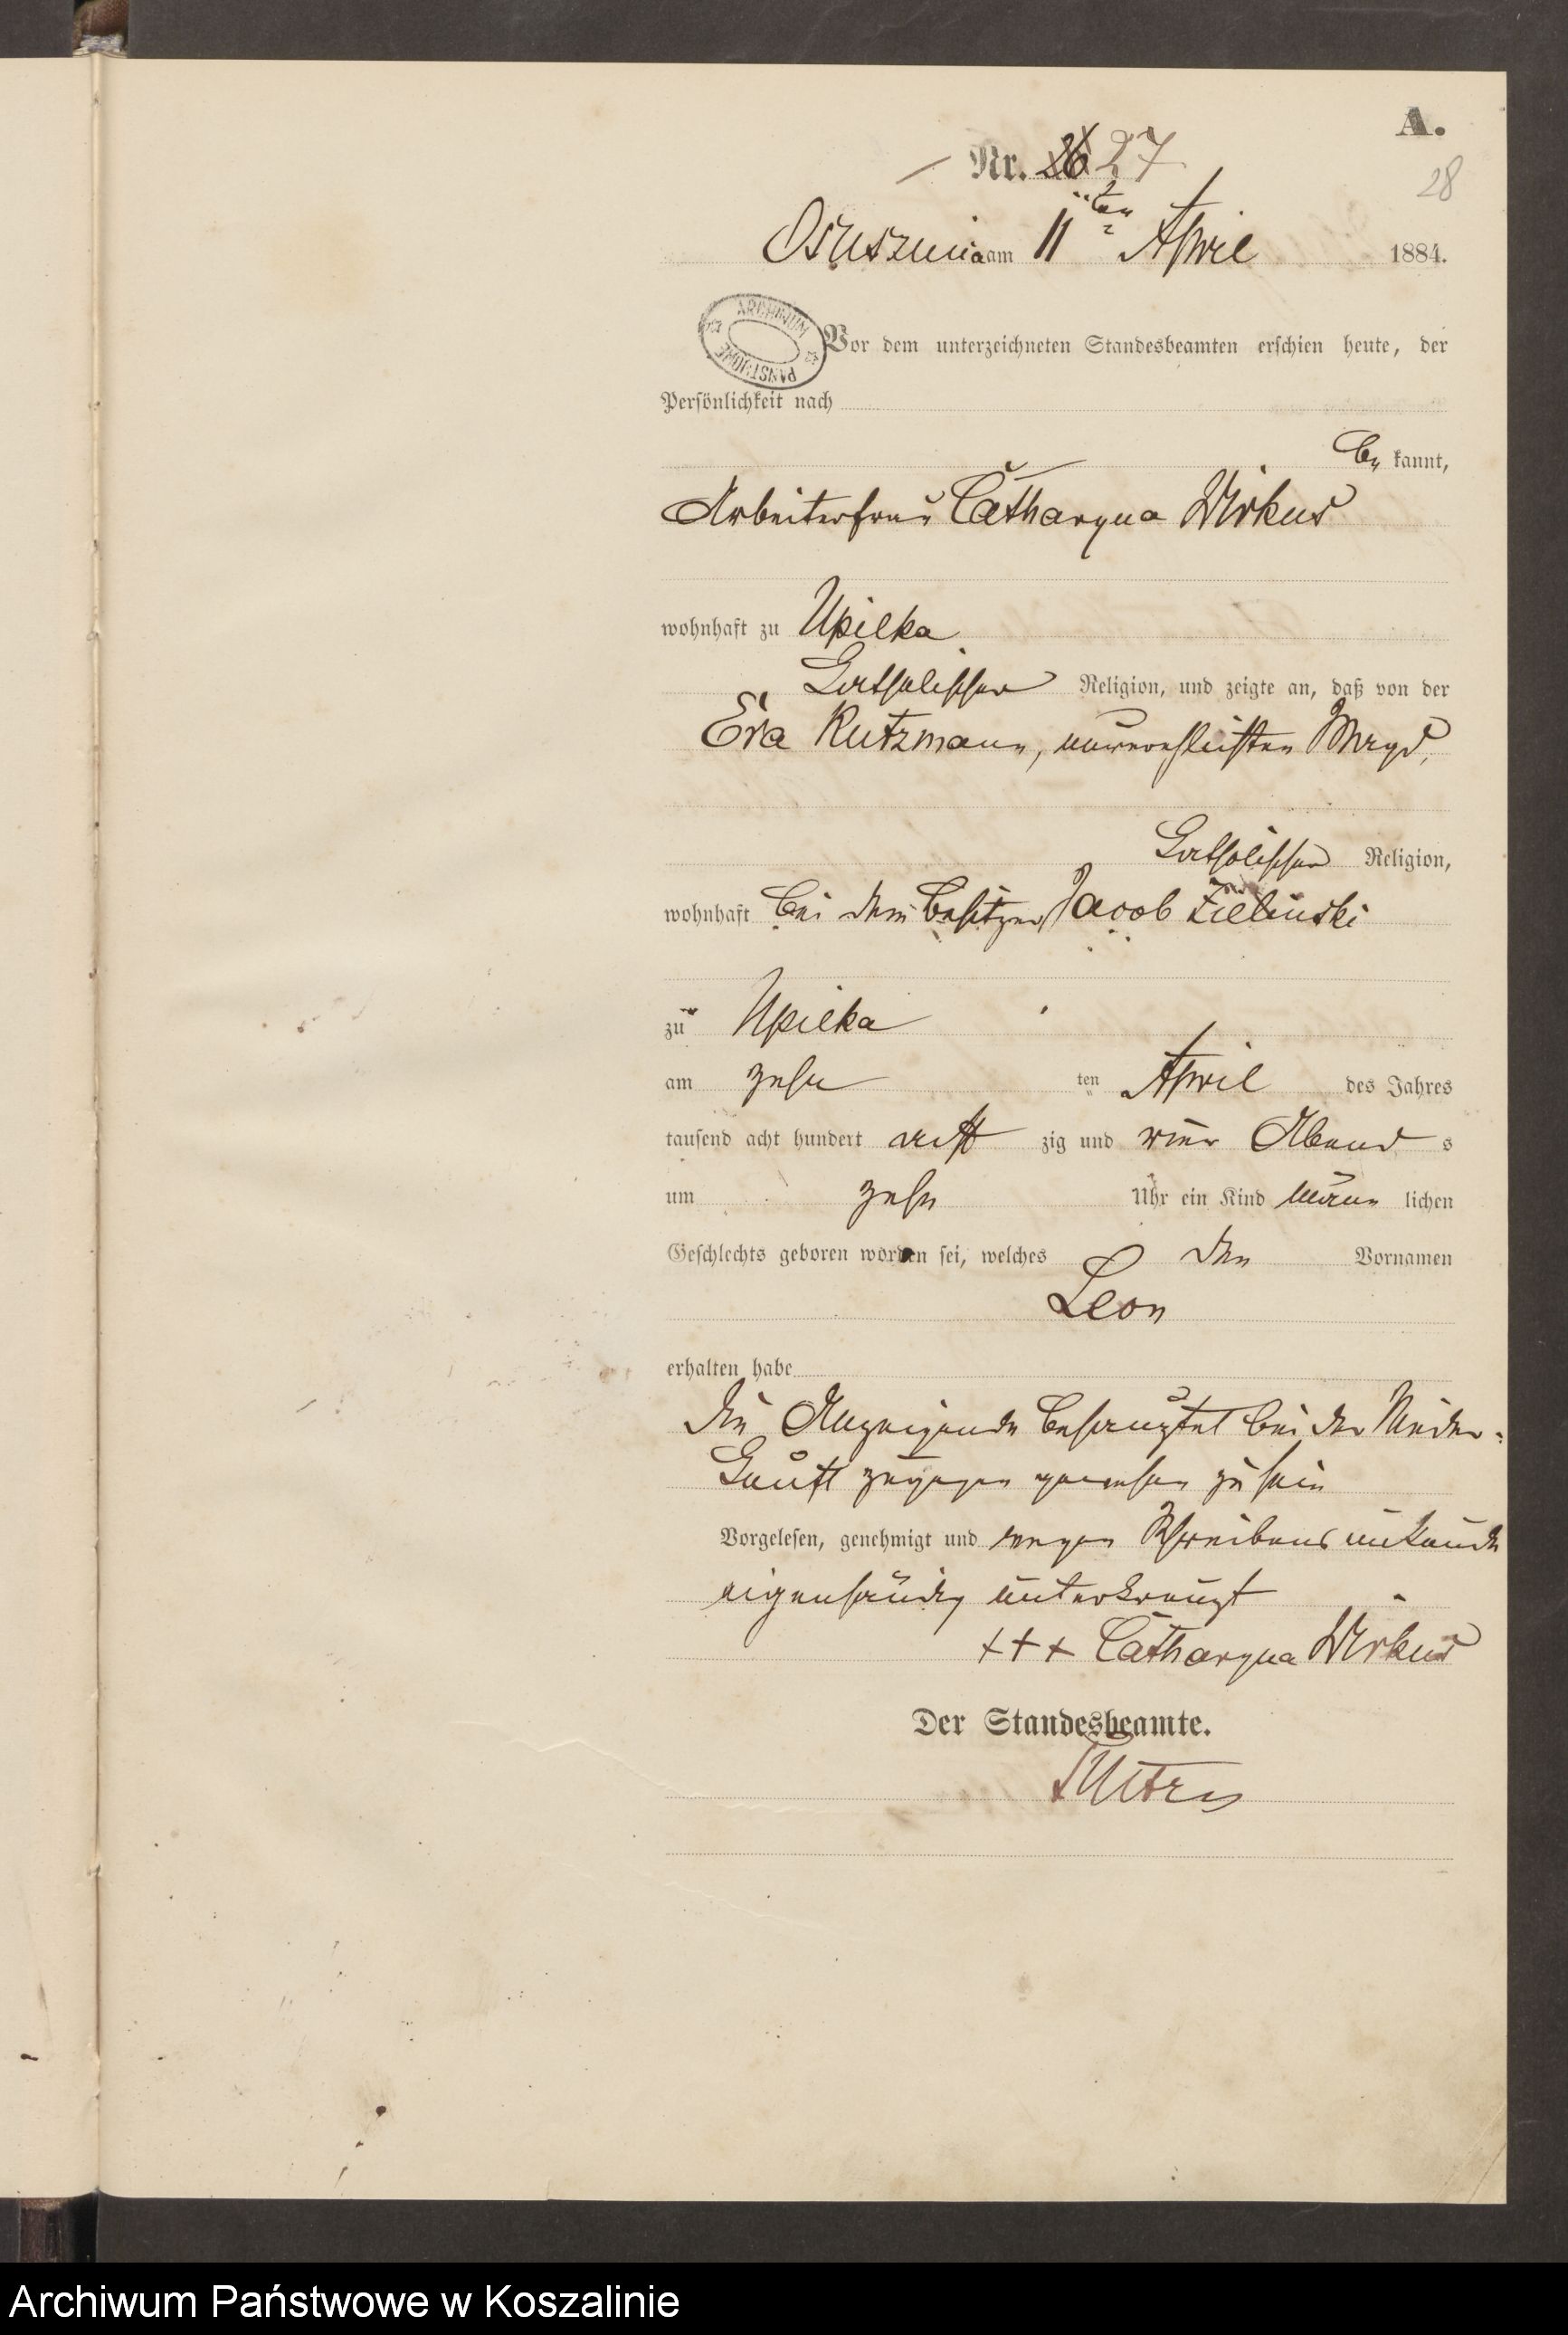 A.
Nr. 26 27
28
Osuszniza am 11ten April 1884.
ARCHIWUM PAŃSTWOWE
Vor dem unterzeichneten Standesbeamten erschien heute, der
Persönlichkeit nach
be kannt,
Arbeiterfrau Catharyna Wirkus
wohnhaft zu Upilka
katholischer Religion, und zeigte an, daß von der
Eva Kutzmann, unverehelichten Magd,
katholischer Religion,
wohnhaft bei dem Besitzer Jacob Zielinski
zu Upilka
am zehn ten April des Jahres
tausend acht hundert acht zig und vier Abend s
um zehn Uhr ein Kind männ lichen
Geschlechts geboren worden sei, welches den Vornamen
Leon
erhalten habe
Die Anzeigende behauptet bei der Nieder-
kunft zugegen gewesen zu sein
Vorgelesen, genehmigt und wegen Schreibensunkunde
eigenhändig unterkreuzt
+++ Catharyna Wirkus
Der Standesbeamte.
Archiwum Państwowe w Koszalinie